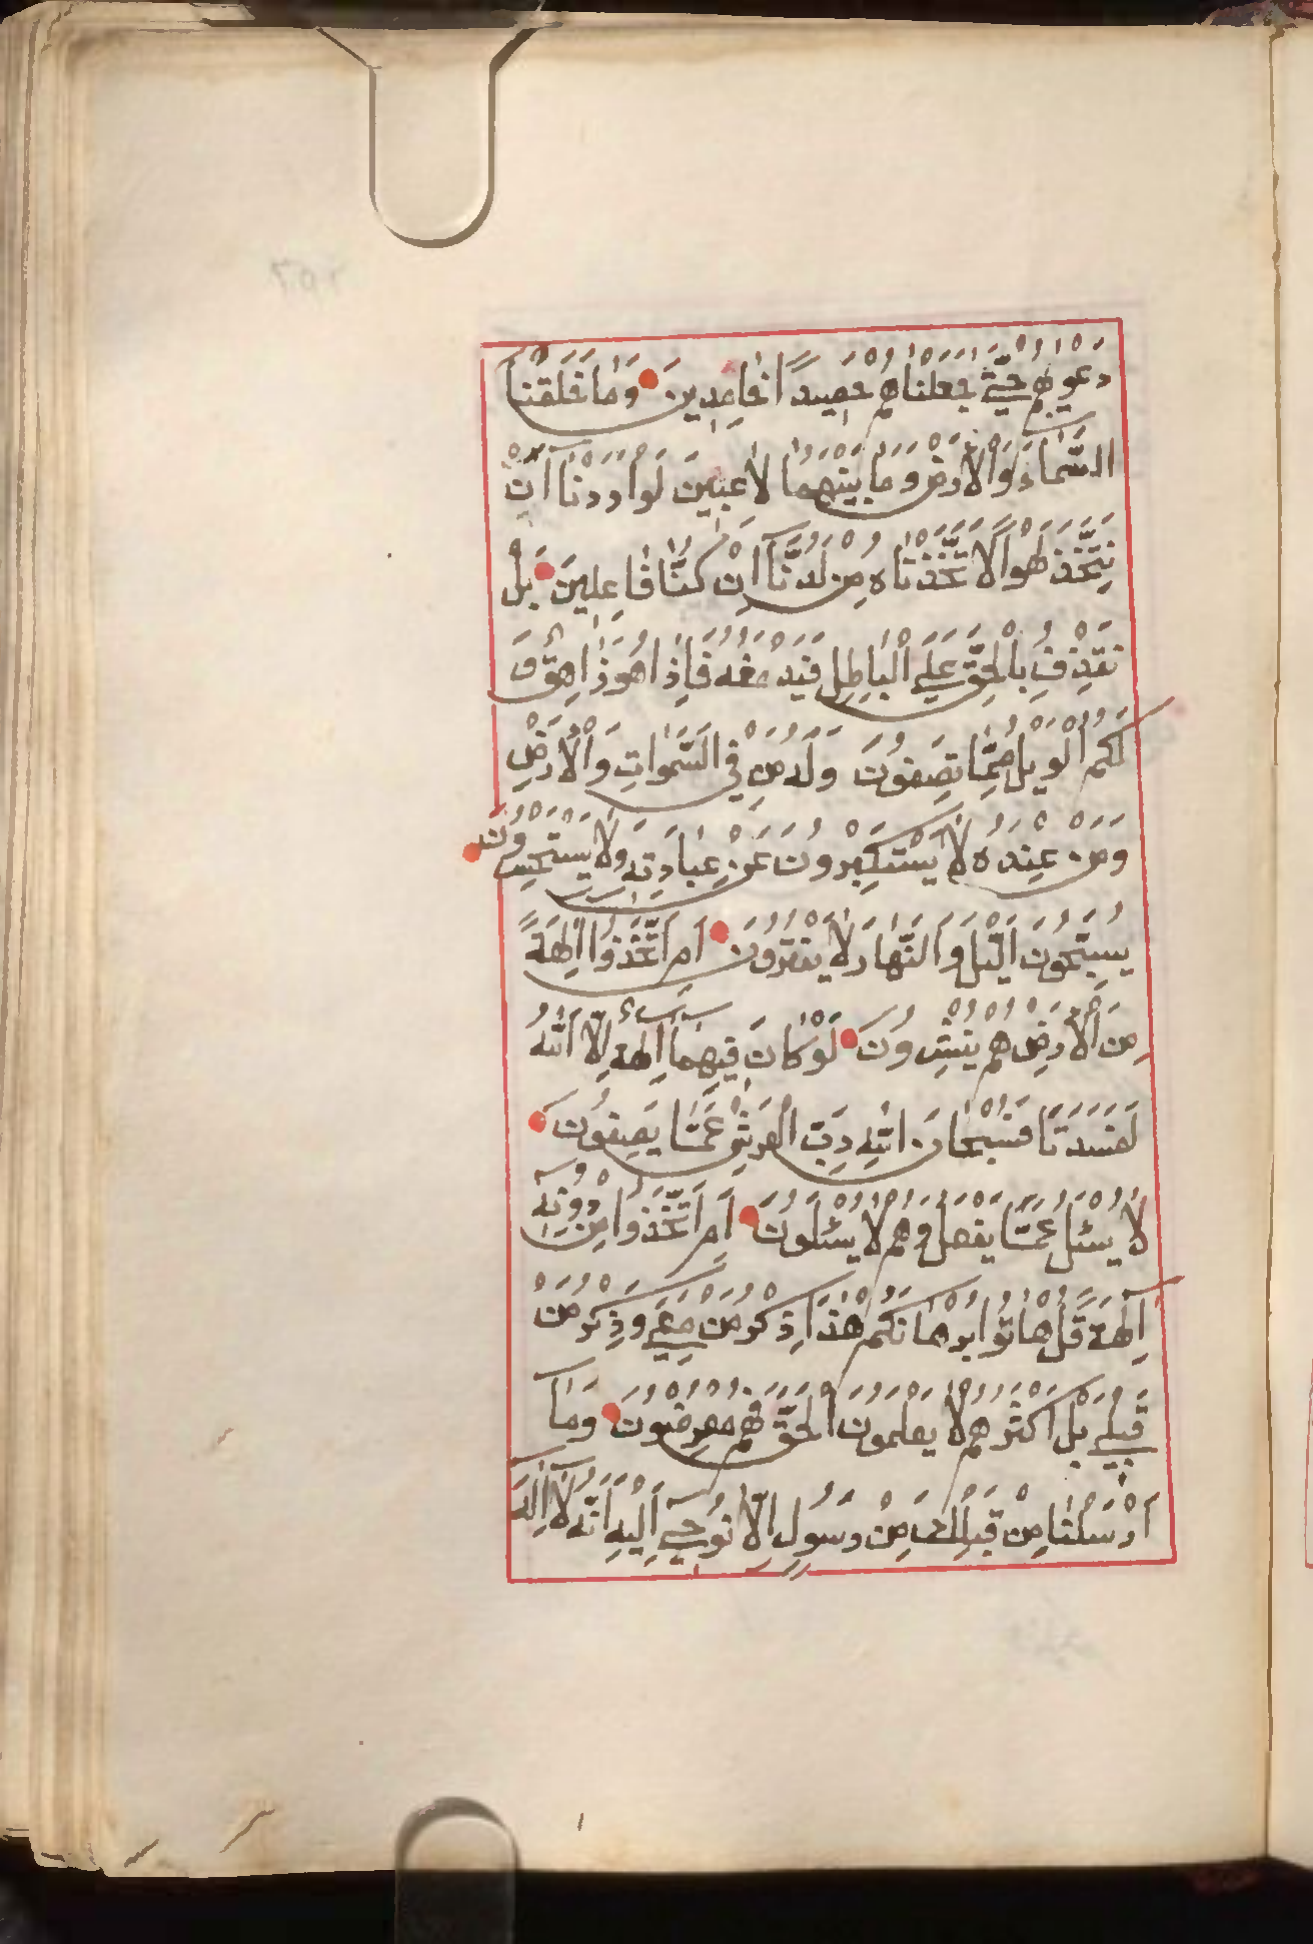 دَعْوٰيهُمْ حَتّٰى جَعَلْنَاهُمْ حَصِيدًا خَامِدِينَ وَمَا خَلَقْنَا
السَّمَاءَ وَالْاَرْضَ وَمَا بَيْنَهُمَا لَاعِبِينَ لَوْ اَرَدْنَا اَنْ
نَتَّخِذَ لَهْوًا لَاتَّخَذْنَاهُ مِنْ لَدُنَّا اِنْ كُنَّا فَاعِلِينَ بَلْ
نَقْذِفُ بِالْحَقِّ عَلَى الْبَاطِلِ فَيَدْمَغُهُ فَاِذَا هُوَ زَاهِقٌ وَ
لَكُمُ الْوَيْلُ مِمَّا تَصِفُونَ وَلَهُ مَنْ فِي السَّمٰوَاتِ وَالْاَرْضِ
وَمَنْ عِنْدَهُ لَا يَسْتَكْبِرُونَ عَنْ عِبَادَتِهِ وَلَا يَسْتَحْسِرُونَ
يُسَبِّحُونَ الَّيْلَ وَالنَّهَارَ لَا يَفْتُرُونَ اَمِ اتَّخَذُوا اٰلِهَةً
مِنَ الْاَرْضِ هُمْ يُنْشِرُونَ لَوْ كَانَ فِيهِمَا اٰلِهَةٌ اِلَّا اللّٰهُ
لَفَسَدَتَا فَسُبْحَانَ اللّٰهِ رَبِّ الْعَرْشِ عَمَّا يَصِفُونَ
لَا يُسْئَلُ عَمَّا يَفْعَلُ وَهُمْ لَا يُسْئَلُونَ اَمِ اتَّخَذُوا مِنْ دُونِهِ
اٰلِهَةً قُلْ هَاتُوا بُرْهَانَكُمْ هٰذَا ذِكْرُ مَنْ مَعِيَ وَذِكْرُ مَنْ
قَبْلِي بَلْ اَكْثَرُهُمْ لَا يَعْلَمُونَ الْحَقَّ فَهُمْ مُعْرِضُونَ وَمَا
اَرْسَلْنَا مِنْ قَبْلِكَ مِنْ رَسُولٍ اِلَّا نُوحِي اِلَيْهِ اَنَّهُ لَا اِلٰهَ